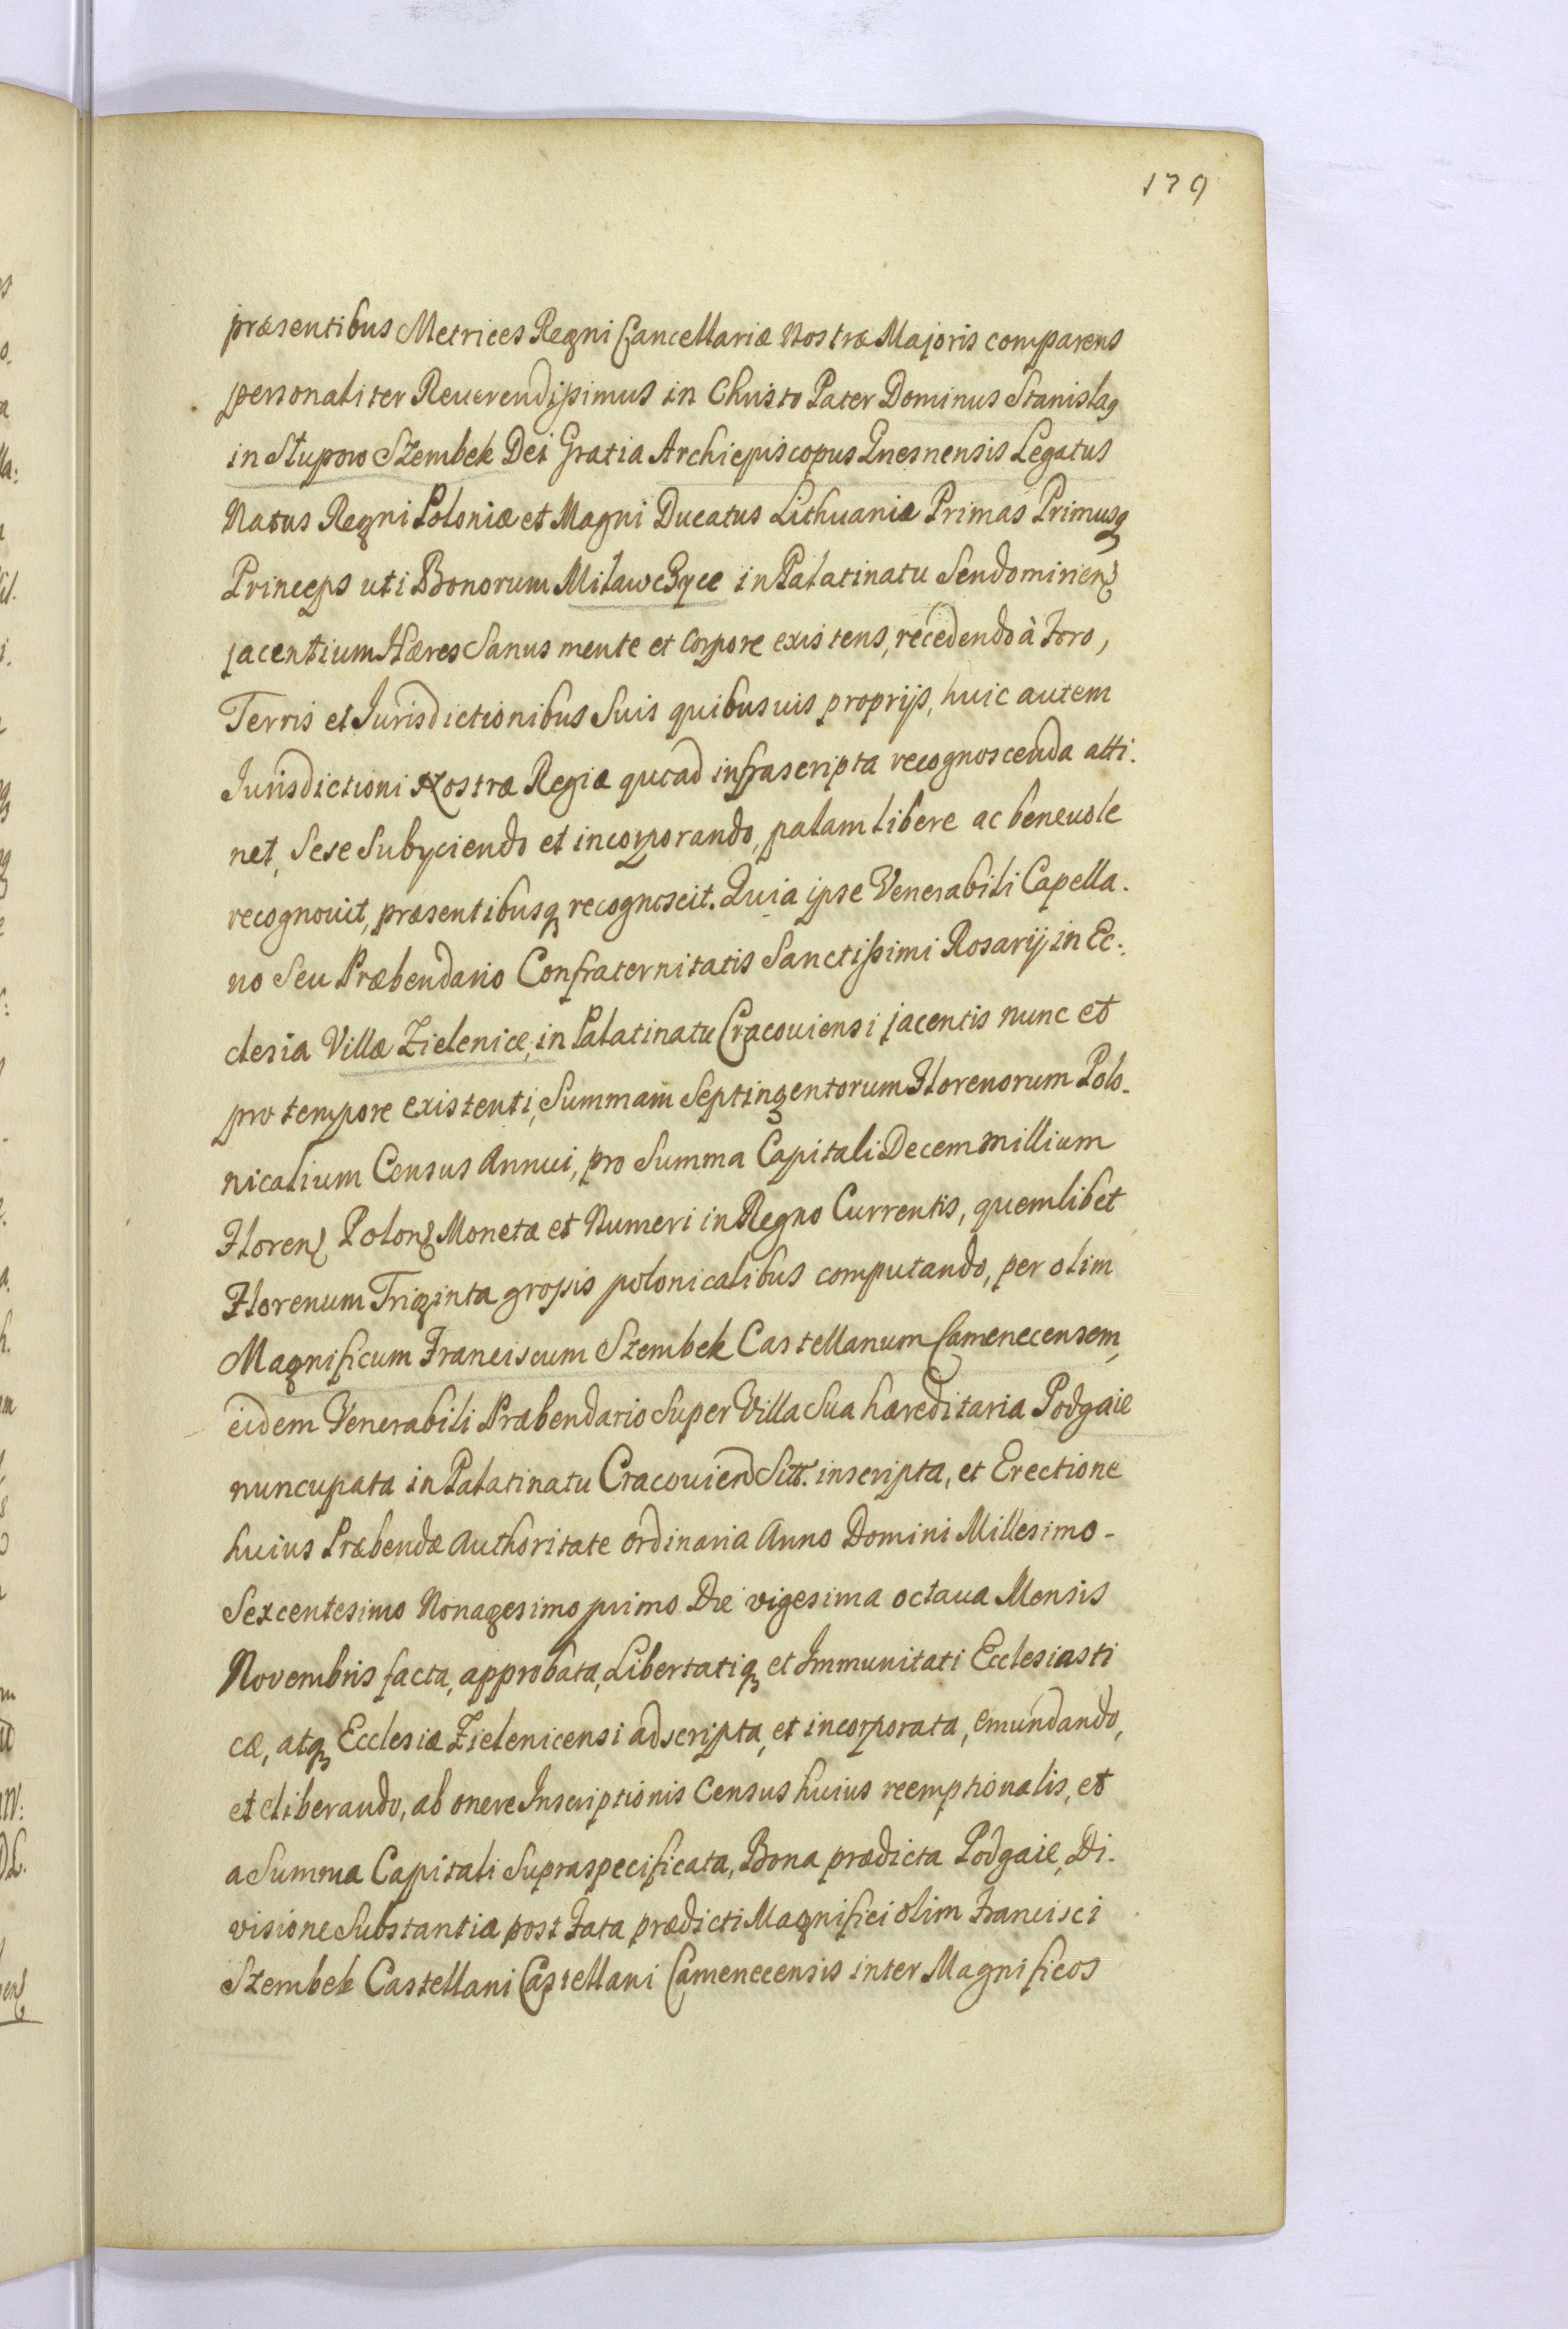 179
præsentibus Metrices Regni Cancellariæ Nostræ Majoris comparens
personaliter Reuerendissimus in Christo Pater Dominus Stanislaq
in Słupow Szembek Dei Gratia Archiepiscopus Gnesnensis Legatus
Natus Regni Poloniæ et Magni Ducatus Lithuaniæ Primas Primusq
Princeps uti Bonorum Milawczyce in Palatinatu Sendomirien
jacentium Hæres Sanus mente et Corpore existens, recedendo à Foro,
Terris et Jurisdictionibus Suis quibusuis proprijs, huic autem
Jurisdictioni Nostræ Regiæ quoad infrascripta recognoscenda atti:
net, Sese Subyciendo et incorporando, palam libere ac beneuole
recognouit, præsentibusq recognoscit. Quia ipse Venerabili Capella-
no Seu Præbendario Confraternitatis Sanctissimi Rosarij, in Ec:
clesia Villæ Zielenice, in Palatinatu Cracouiensi jacentis nunc et
pro tempore existenti, Summam Septingentorum Florenorum Polo-
nicalium Census Annui, pro Summa Capitali Decem millium
Floren Polon Monetæ et Numeri in Regno Currentis, quemlibet
Florenum Triginta grossis polonicalibus computando, per olim
Magnificum Franciscum Szembek Castellanum Camenecensem,
eidem Venerabili Præbendario Super Villa Sua hæreditaria Podgaie
nuncupata in Palatinatu Cracouien Sitt. inscripta, et Erectione
huius Præbendæ Authoritate Ordinaria Anno Domini Millesimo-
Sexcentesimo Nonagesimo primo Die vigesima octaua Mensis
Novembris facta, approbata, Libertatiq et Immunitati Ecclesiasti
cæ, atq Ecclesiæ Zielenicensi adscripta, et incorporata, emundando,
et eliberando, ab onere Inscriptionis Census huius reemptionalis, et
a Summa Capitali Supraspecificata, Bona prædicta Podgaie, Di-
visione Substantiæ post Fata prædicti Magnifici olim Francisci
Szembek Castellani Castellani Camenecensis inter Magnificos